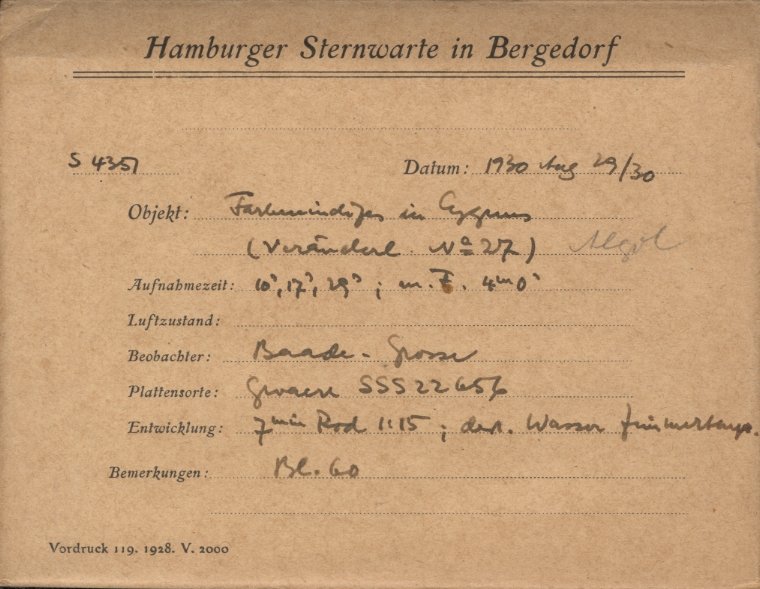 Hamburger Sternwarte in Bergedorf
S 4351 Datum: 1930 Aug 29/30
Objekt: Farbenindizes in Cygnus
(Veränderl. No 27) Algol
Aufnahmezeit: 10s, 17s, 29s; m. E. 4m0s
Luftzustand:
Beobachter: Baade - Grosse
Plattensorte: Gevaert SSS 22656
Entwicklung: 7min Rod 1:15; dest. Wasser Zimmertemp.
Bemerkungen: Bl. 60
Vordruck 119. 1928. V. 2000